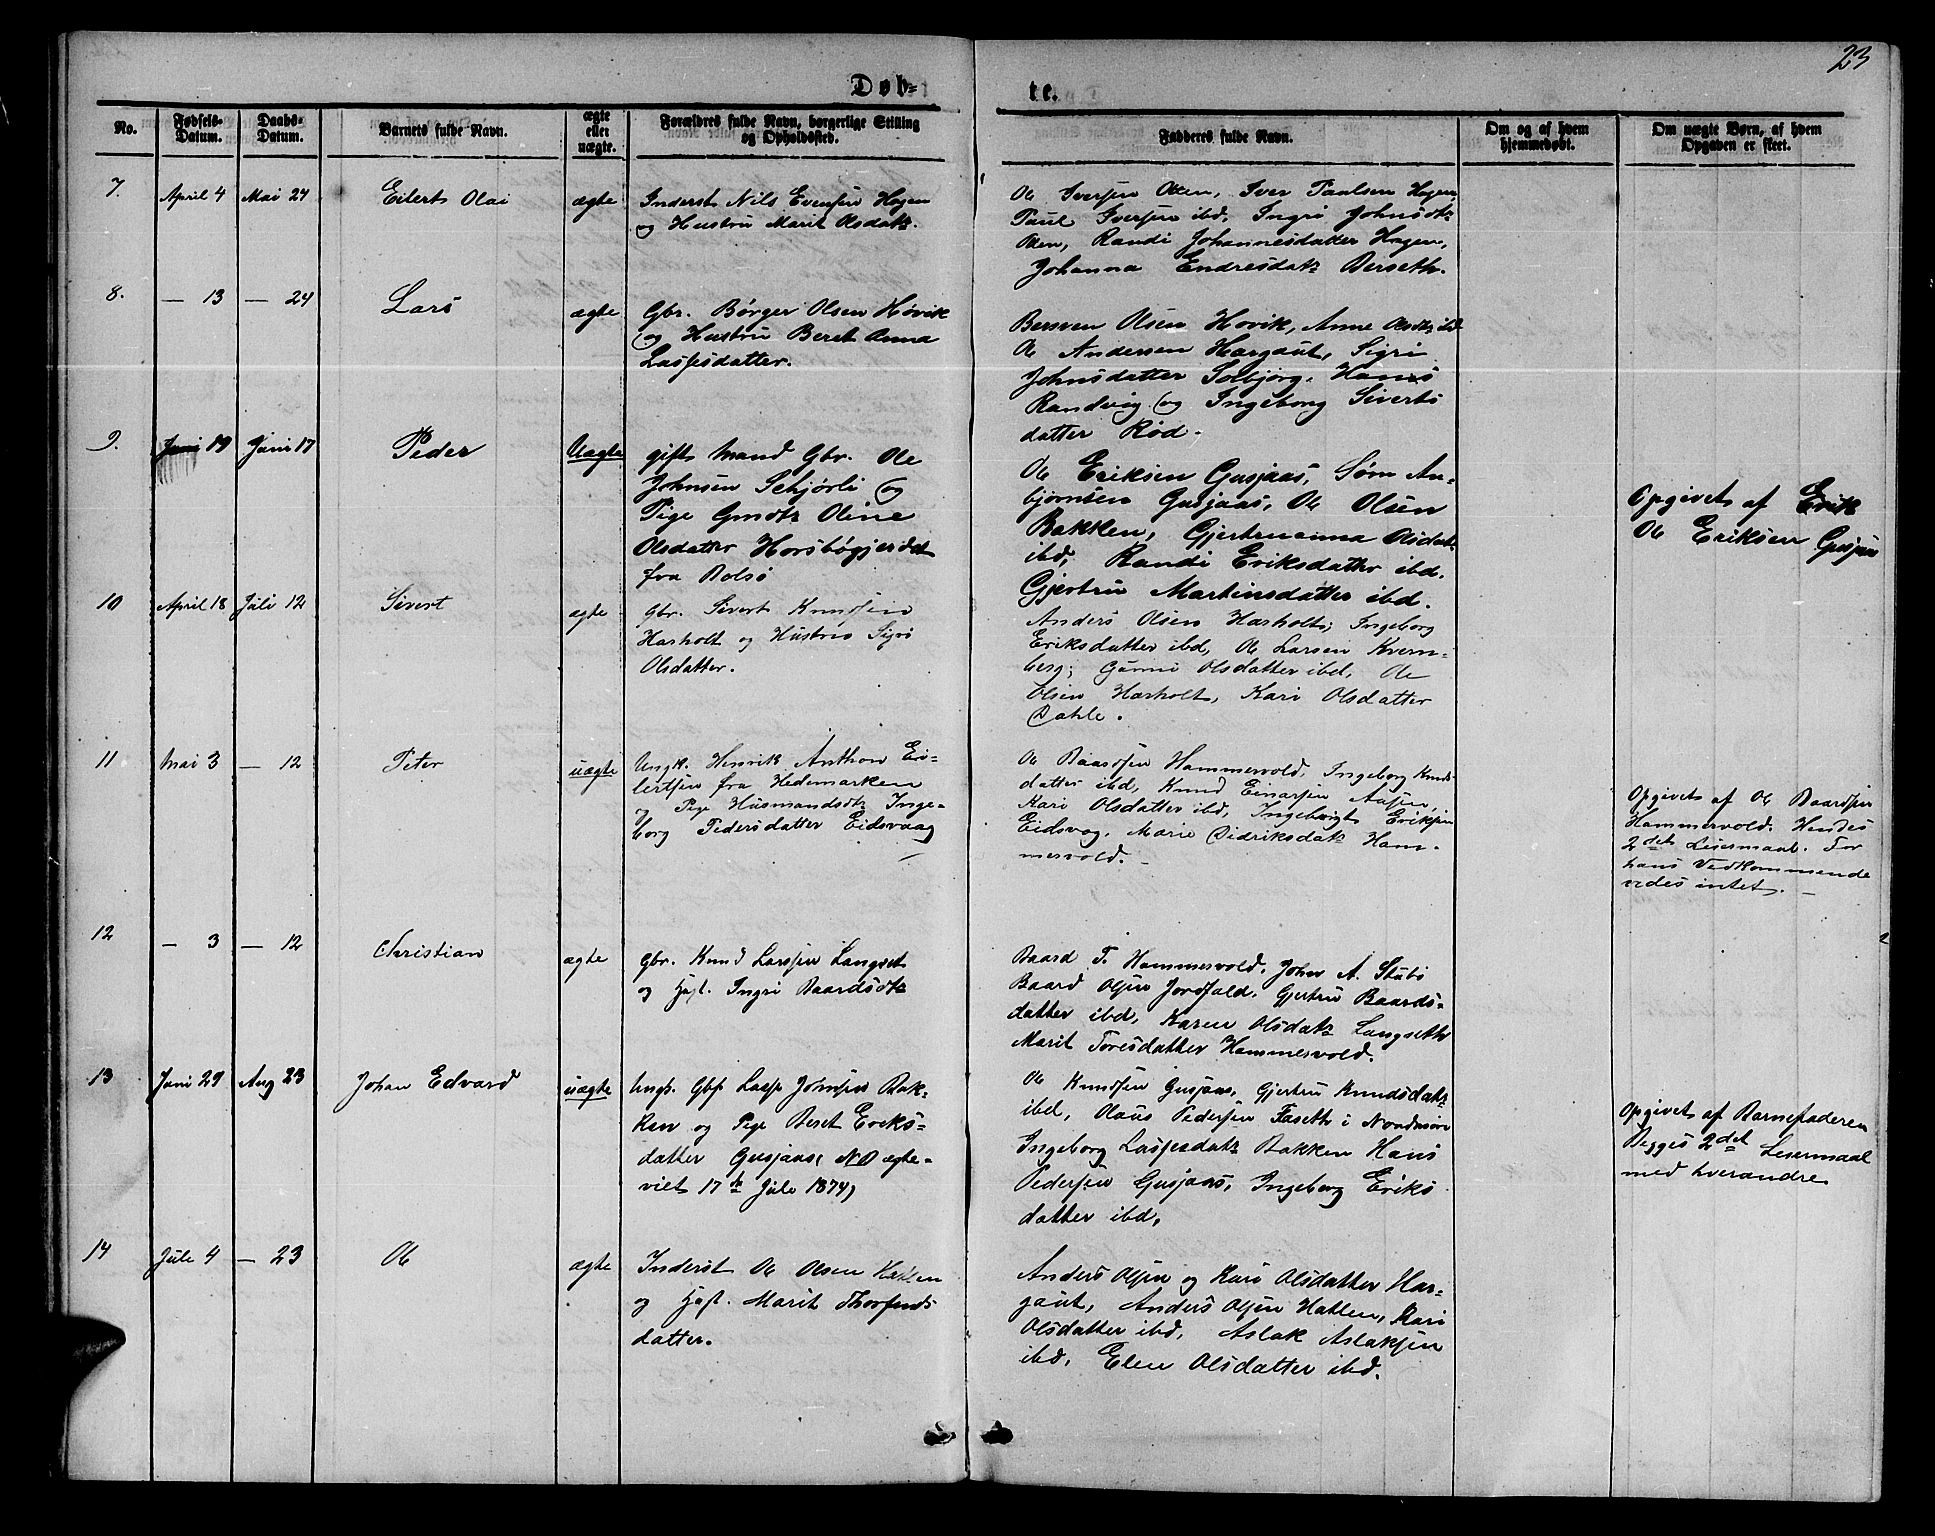 23
Døb-
te.
No.
Fødsels-
Datum.
Daabs-
Datum.
Barnets fulde Navn.
ægte
eller
uægte.
Forældres fulde Navn, borgerlige Stilling
og Opholdssted.
Fadderes fulde Navn.
Om og af hvem
hjemmedøbt.
Om uægte Børn, af hvem
Opgaven er skeet.
7.
April 4
Mai 24
Eilert Olai
ægte
Inderst Nils Evensen Hagen
og Hustru Marit Olsdatr.
Ole Iversen Iver Paulsen Hagen
Paul Iversen ibd, Ingri Johnsdtr
Randi Johannesdatter Hagen,
Johanna Endresdatr Berseth.
8.
— 13
— 24
Lars
ægte
Gbr. Børger Olsen Høvik
og Hustru Beret Anna
Lassesdatter.
Bersven Olsen Hovik, Anne Olsdtr ibd
Ole Andersen Hargaut, Sigri
Johnsdatter Solbjørg. Hans
Randvig og Ingeborg Siverts
datter Rød.
9.
Juni 19
Juni 17
Peder
Uægte
gift Mand Gbr. Ole
Johnsen Schjørli og
Pige Gmdtr Oline
Olsdatter Horsbøgjerdet
fra Bolsø
Ole Eriksen Gusjaas, Sørn An-
bjørnsen Gusjaas, Ole Olsen
Bakken, Gjertruanna Olsdatr
ibd, Randi Eriksdatter ibd.
Gjertru Martinsdatter ibd.
Opgivet af Erik
Ole Eriksen Gusjaas
10
April 18
Juli 12
Sivert
ægte
Gbr. Sivert Knudsen
Harholt og Hustru Sigri
Olsdatter.
Anders Olsen Harholt, Ingeborg
Eriksdatter ibd, Ole Larsen Kvern-
berg; Gunni Olsdatter ibd, Ole
Olsen Harholt, Kari Olsdatter
Dahle.
11
Mai 3
— 12
Peter
uægte
Ungk. Henrik Anthon Ei-
lertsen fra Hedemarken
og Pige Husmandsdtr Inge-
borg Pedersdatter Eidsvaag
Ole Baardsen Hammervold, Ingeborg Knuds-
datter ibd, Knud Einarsen Aasen,
Kari Olsdatter ibd, Ingebrigt Eriksen
Eidsvog, Marie Didriksdatr Ham-
mervold.
Opgivet af Ole Baardsen
Hammervold. Hendes
2det Leiermaal. For
hans Vedkommende
vides intet.
12
— 3
— 12
Christian
ægte
Gbr. Knud Larssen Langset
og Hust. Ingri Baardsdtr
Baard T. Hammervold, John A. Stubø
Baard Olsen Jordfald, Gjertru Baards-
datter ibd, Karen Olsdatr Langseth
Marit Toresdatter Hammervold.
13
Juni 29
Aug 23
Johan Edvard
uægte
Ungk. Gbs Lasse Johnsen Bak-
ken og Pige Beret Eriks-
datter Gusjaas, NB ægte-
viet 17de Juli 1874)
Ole Knudsen Gusjaas, Gjertru Knudsdatr
ibd, Olaus Pedersen Faseth i Nordmøre
Ingeborg Lassesdatr Bakken Hans
Pedersen Gusjaas, Ingeborg Eriks
datter ibd,
Opgivet af Barnefaderen
Begges 2det Leiermaal
med hverandre
14
Jule 4
— 23
Ole
ægte
Inderst Ole Olsen Hatlen
og Hust. Marit Thorfinds
datter.
Anders Olsen og Kari Olsdatter Har-
gaut, Anders Olsen Hatlen, Kari
Olsdatter ibd, Aslak Aslaksen
ibd, Elen Olsdatter ibd.